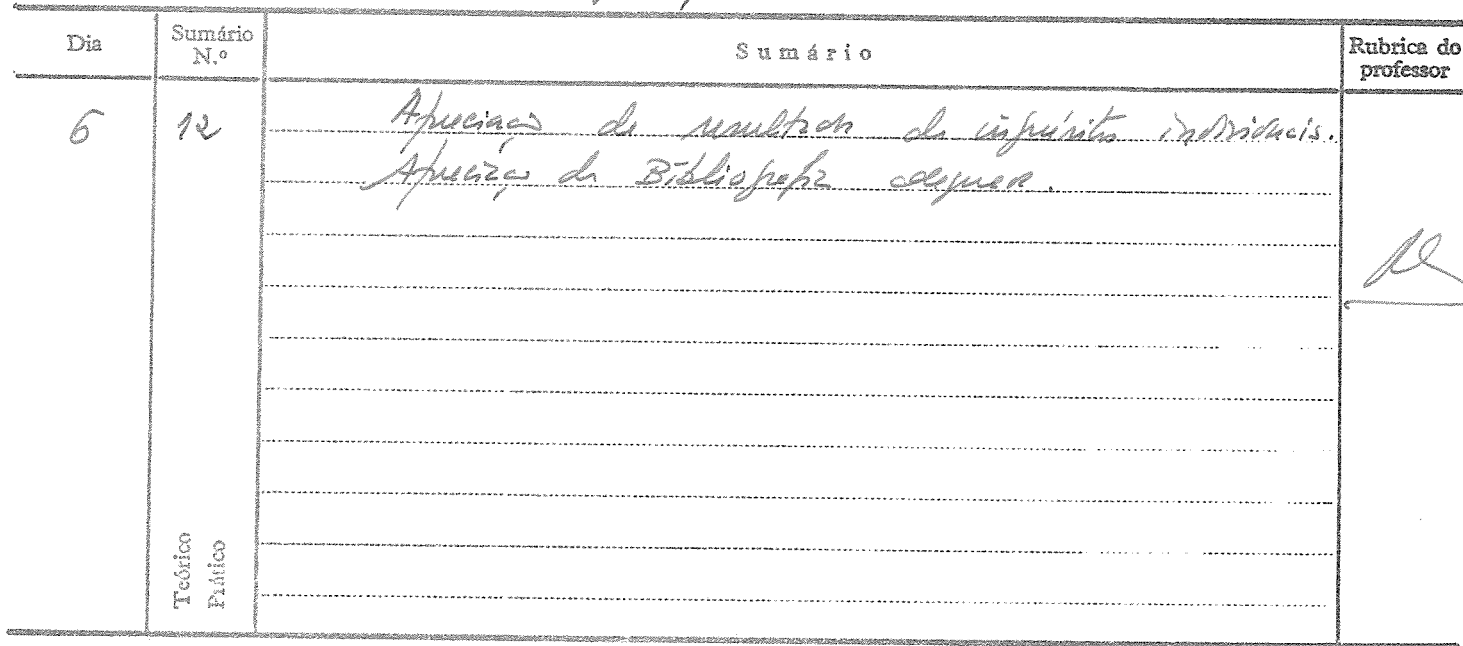 Dia
Sumário N.º
Sumário
Rubrica do professor
6
12
Apreciação de resultados de inquéritos individuais.
Apreciação da Bibliografia adequada.
Teórico
Prático